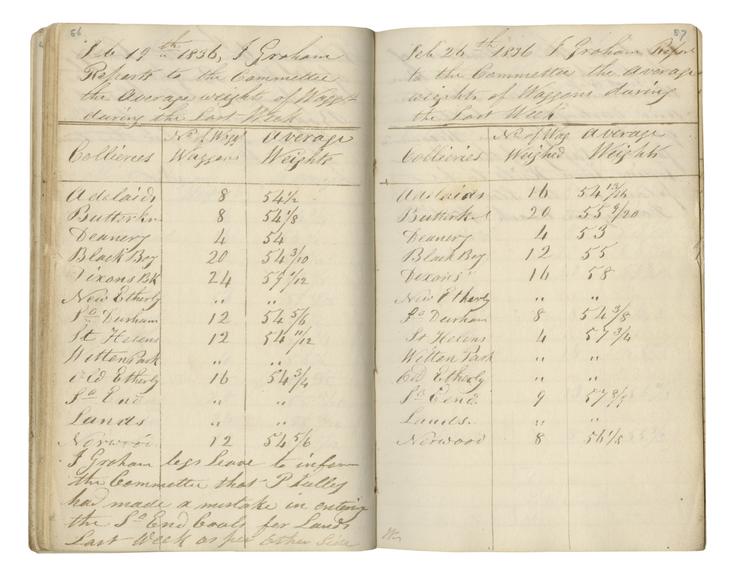 86
Feb 19th 1836, J Graham
Reports to the Committee
the Average weight of Wagg.s
during the Last Week
Collieries No. of Wagg.s Waggons Average Weights
Adelaids 8 54 1/2
8 54 1/8
Deanery 4 54
Black Boy 20 54 3/10
Dixons Bk 24
New Etherly " "
So Durham 12 54 5/6
St Helens 12 54 11/12
Witton Park " "
Old Etherly 16 54 3/4
So End " "
Lands " "
Norwood 12 54 5/6
J Graham begs leave to inform
the Committee that P
had made a mistake in entering
the So End Coals for Lands
Last Week as per Other Side
87
Feb 26th 1836 J Graham Report
to the Committee the Average
weights of Waggons during
the Last Week
Collieries No. of Wag Weighed Average Weights
Adelaids 16
20 55 9/20
Deanery 4 53
Black Boy 12 55
Dixons 16 58
New Etherly " "
So Durham 8 54 3/8
St Helens 4 57 3/4
Witton Park " "
Old Etherly " "
So Eend 9
Lands " "
Norwood 8 56 1/8